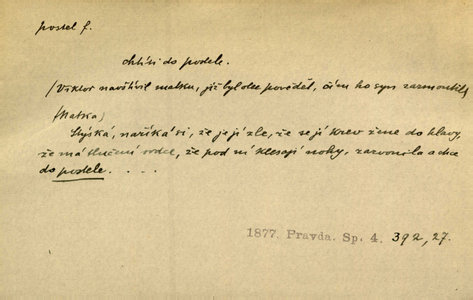 postel f.
chtíti do postele.
(Viktor navštívil matku, jíž byl otec pověděl, čím ho syn zarmoutil)
(Matka)
Stýská, naříká si, že je jí zle, že se jí krev žene do hlavy,
že má tlučení srdce, že pod ní klesají nohy, zazvonila a chce
do postele. . . . .
1877. Pravda. Sp. 4. 392, 27.